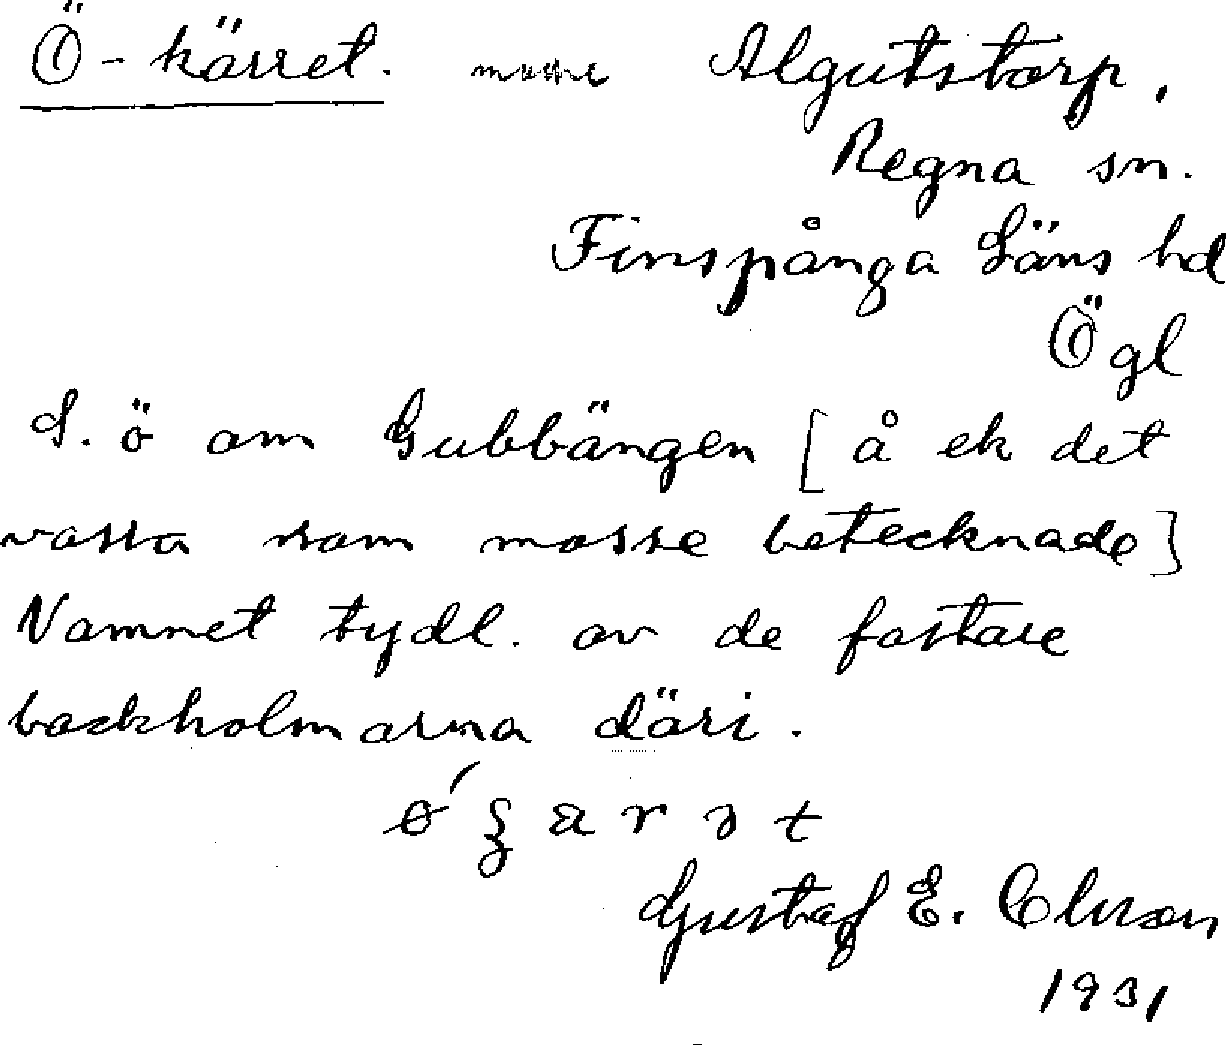 Ö-kärret. mosse Algutstorp,
Regna sn.
Finspånga Läns hd
Ögl
S. ö om Gubbängen [å ek det
vassa som mosse betecknade]
Namnet tydl. av de fastare
backholmarna däri.
Gustaf E. Olsson
1931